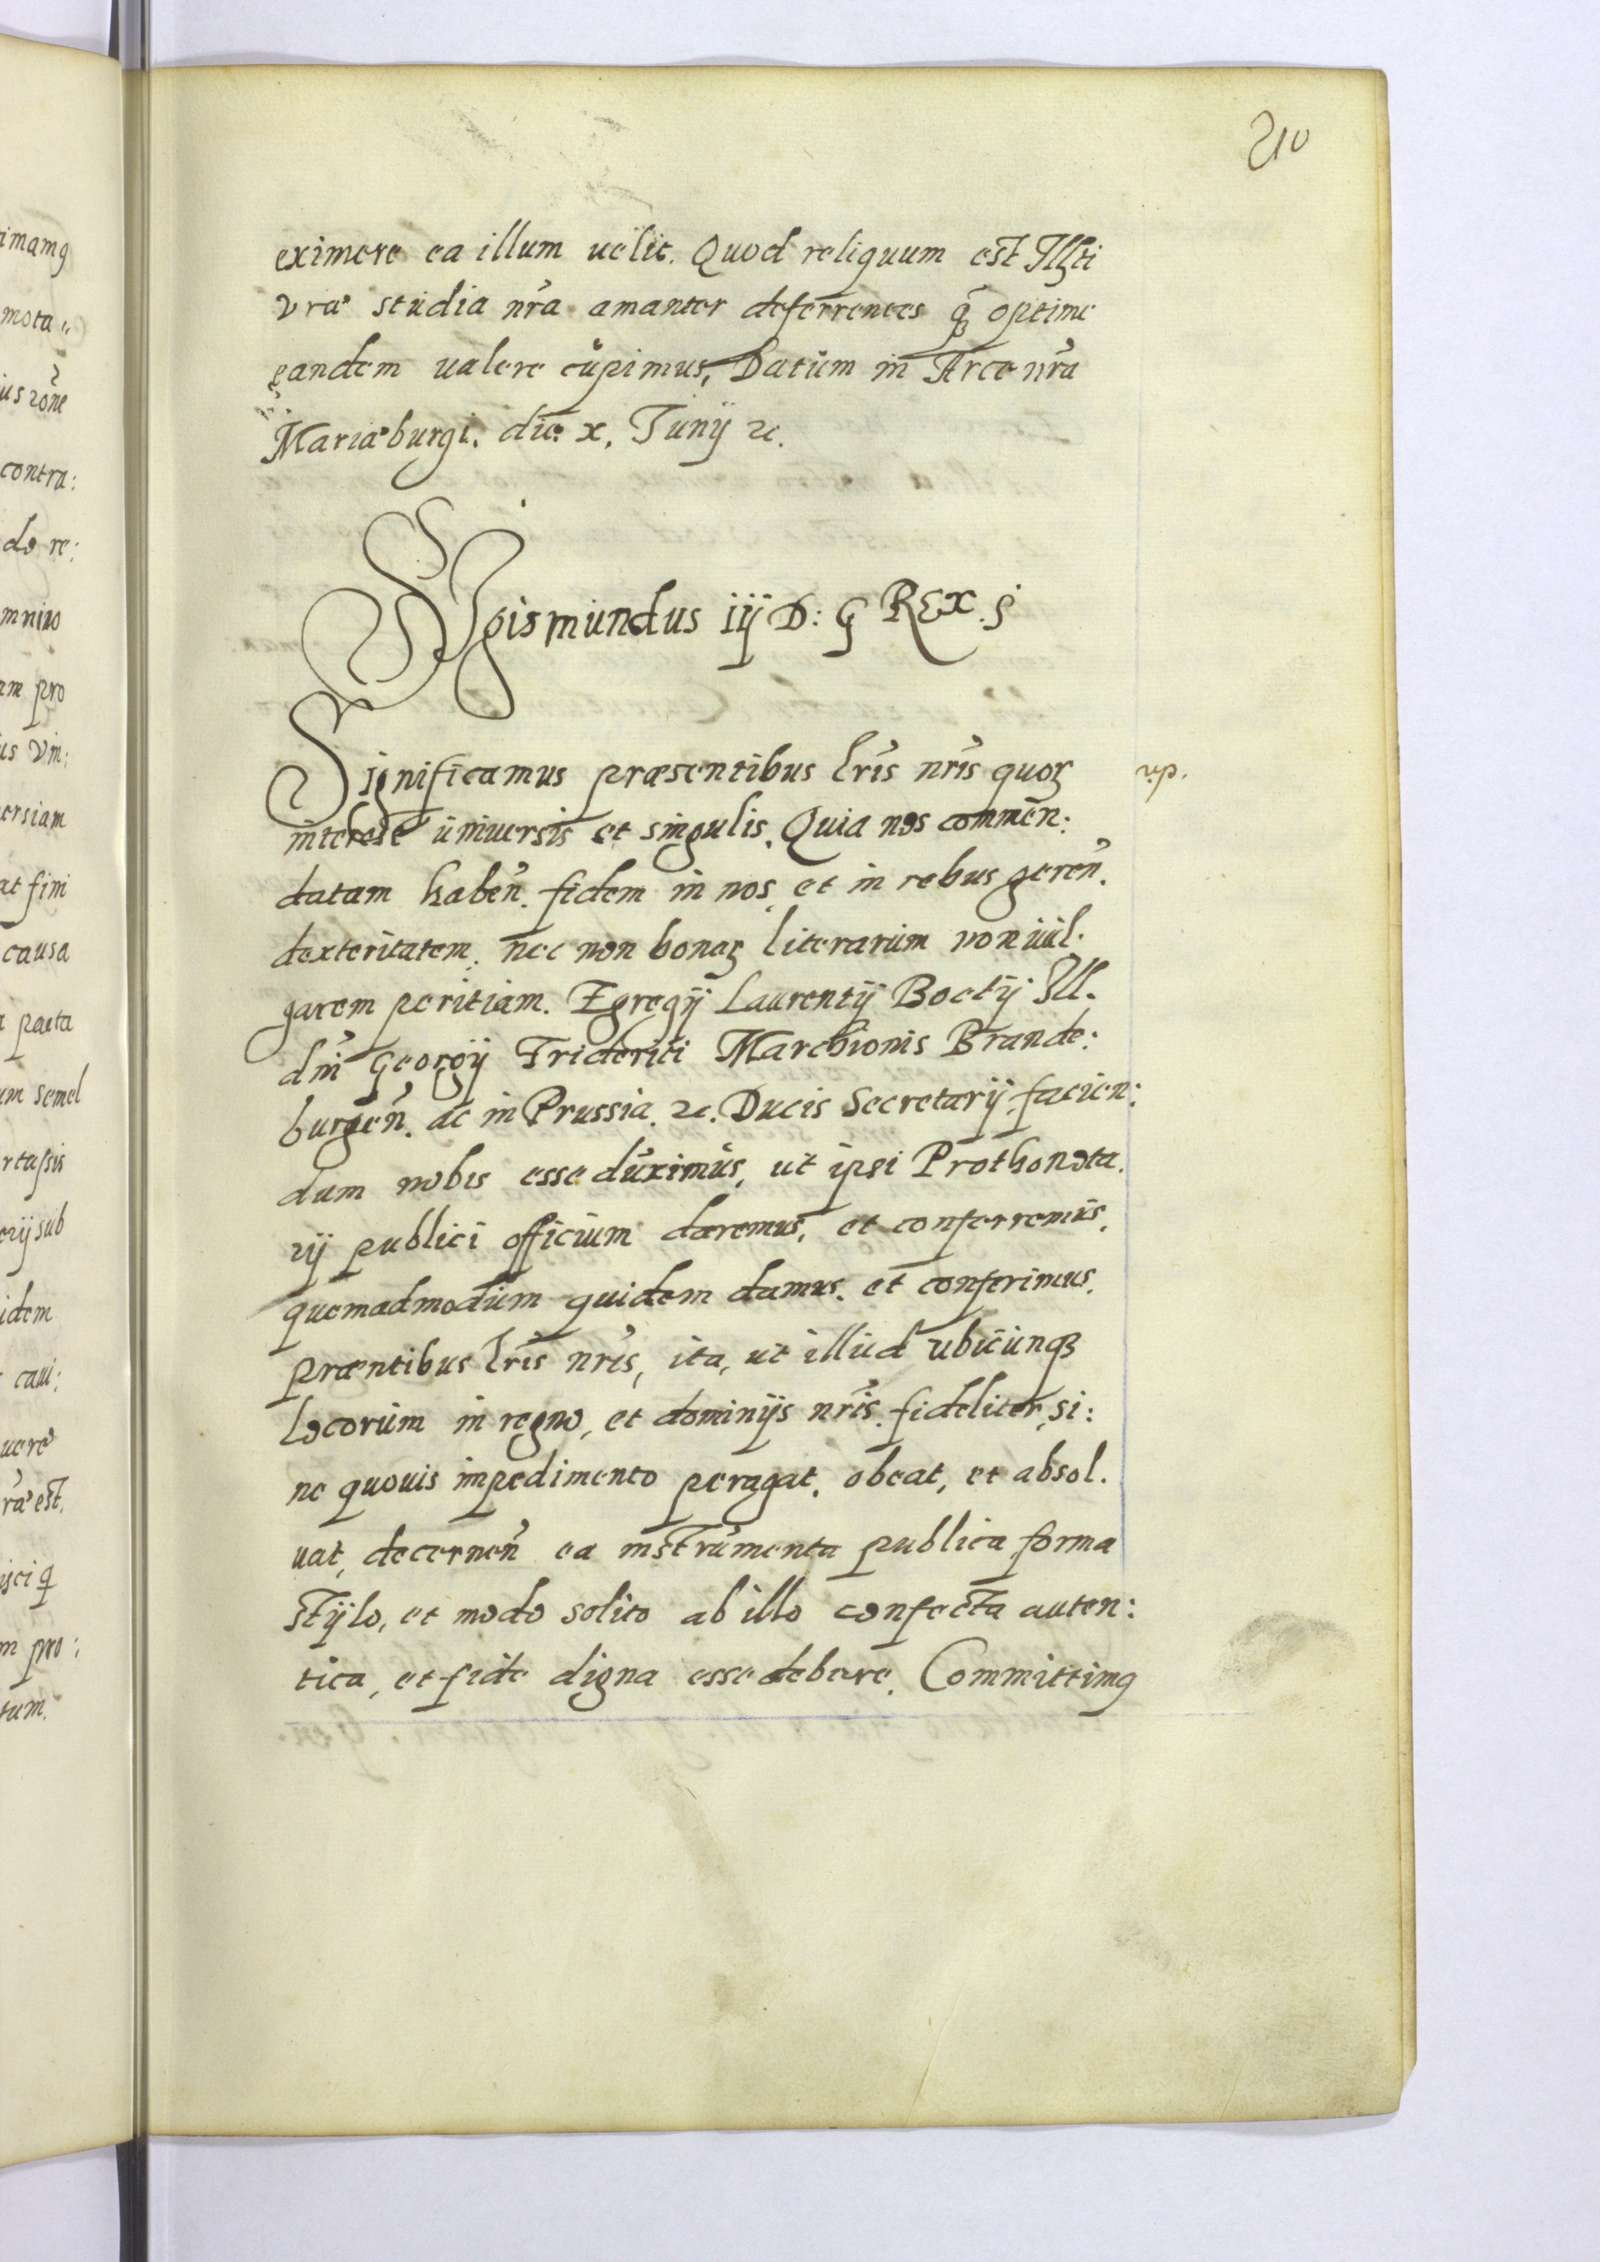 210
eximere ea illum uelit. Quod reliquum est Illti
vrae studia nra amanter deferrentes q̃ optime
eandem ualere cupimus, Datum in Arce nra
Mariaeburgi. die x. Junij ꝛc.
Sigismundus iij D: G Rex. P
Significamus praesentibus lris nris quoꝝ
interest uniuersis et singulis. Quia nos commen:
datam haben̄. fidem in nos, et in rebus geren̄.
dexteritatem. nec non bonaꝝ literarum non uul.
garem peritiam. Egregij Laurentij Boetij Ill.
dni Georgij Friderici Marchionis Brande:
burgen̄. ac in Prussia. ꝛc. Ducis Secretarij. facien:
dum nobis esse duximus, ut ipsi Prothonota.
rij publici officium daremus, et conferremus.
quemadmodum quidem damus. et conferimus.
praentibus lris nris, ita, ut illud ubicunqꝫ
locorum in regno, et dominijs nris. fideliter, si:
ne quouis impedimento peragat. obeat, et absol.
uat, decernen̄ ea instrumenta publica forma
stylo, et modo solito ab illo confecta auten:
tica, et fide digna esse debere. Committimꝰ